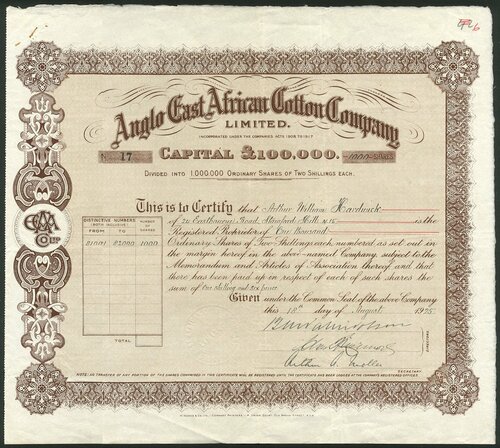 Anglo East African Cotton Company
LIMITED.
INCORPORATED UNDER THE COMPANIES ACTS 1908 TO 1917
No. 17
CAPITAL £100,000.
1000 Shares
DIVIDED INTO 1,000,000 ORDINARY SHARES OF TWO SHILLINGS EACH.
DISTINCTIVE NUMBERS (BOTH INCLUSIVE)
NUMBER OF SHARES
FROM TO
81001 82000 1000
TOTAL
This is to Certify that Arthur William Hardwick
of 20 Eastbourne Road, Stamford Hill N15 is the
Registered Proprietor of One thousand
Ordinary Shares of Two Shillings each, numbered as set out in
the margin hereof in the above-named Company, subject to the
Memorandum and Articles of Association thereof and that
there has been paid up in respect of each of such shares the
sum of One shilling and six pence
Given under the Common Seal of the above Company
this 18th day of August 1925
DIRECTORS
SECRETARY
NOTE: NO TRANSFER OF ANY PORTION OF THE SHARES COMPRISED IN THIS CERTIFICATE WILL BE REGISTERED UNTIL THE CERTIFICATE HAS BEEN LODGED AT THE COMPANY'S REGISTERED OFFICE.